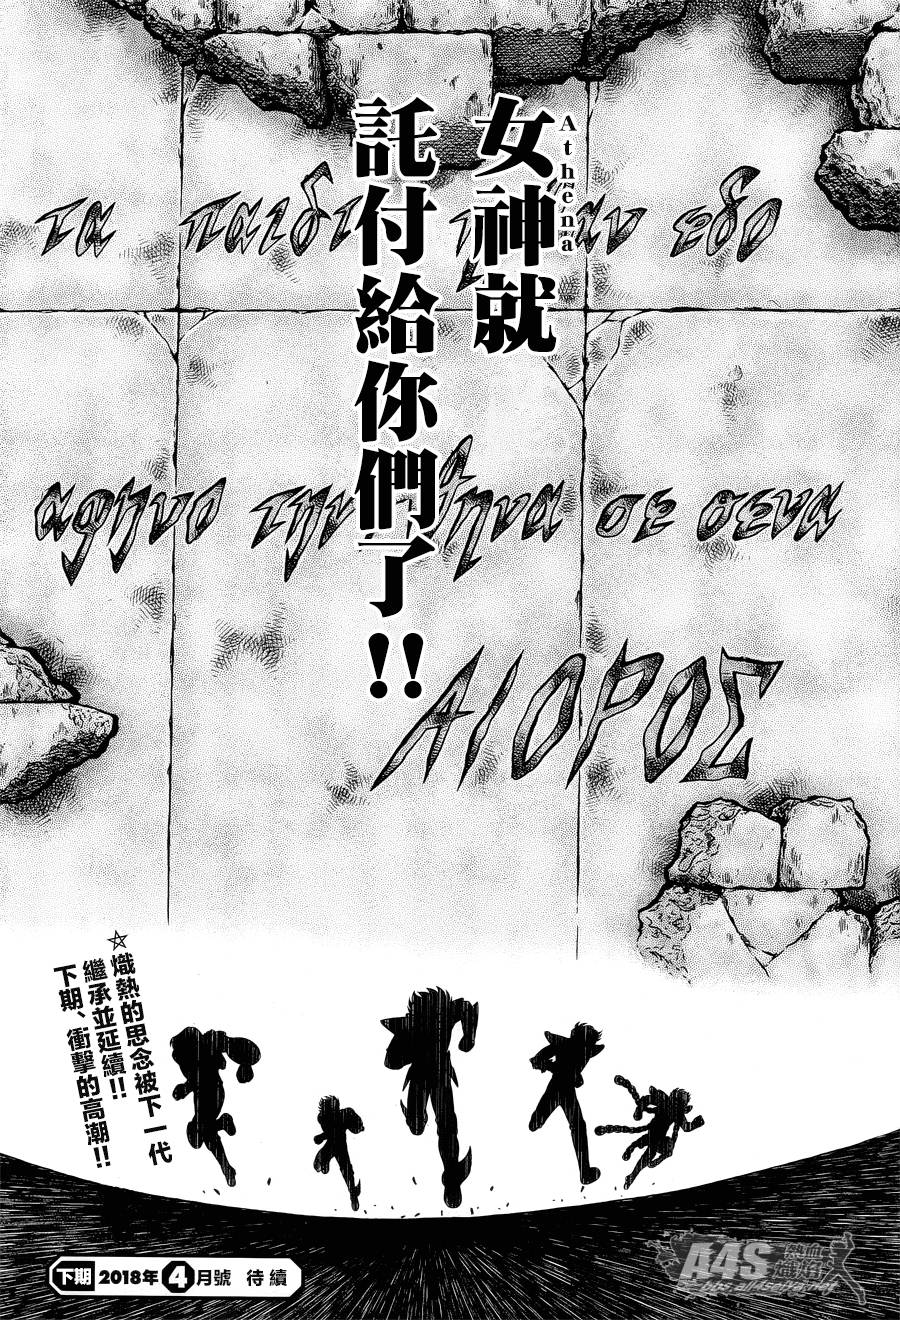 女神就
Athena
託付給你們了!!
τα παιδι αν εδο
αφηνο την θηνα σε σενα
ΑΙΟΡΟΣ
☆熾熱的思念被下一代
繼承並延續!!
下期、衝擊的高潮!!
下期 2018年4月號 待續
A4S 熱血